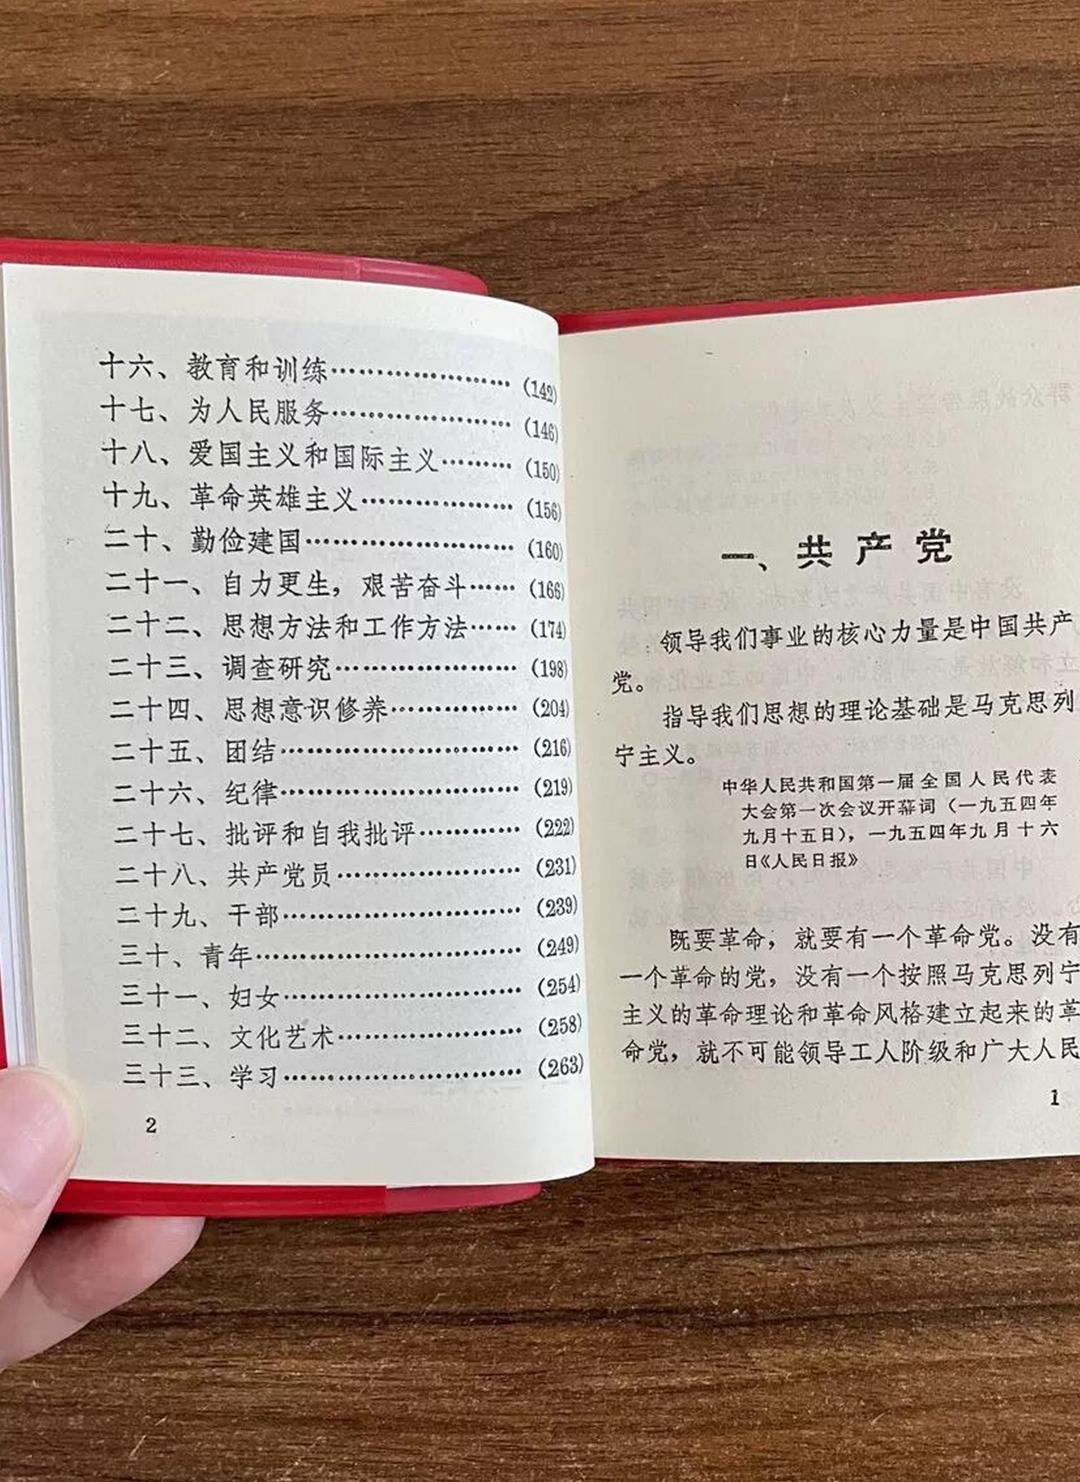 十六、教育和训练……………………(142)
十七、为人民服务……………………(146)
十八、爱国主义和国际主义………(150)
十九、革命英雄主义…………………(156)
二十、勤俭建国………………………(160)
二十一、自力更生，艰苦奋斗……(166)
二十二、思想方法和工作方法……(174)
二十三、调查研究……………………(198)
二十四、思想意识修养………………(204)
二十五、团结…………………………(216)
二十六、纪律…………………………(219)
二十七、批评和自我批评……………(222)
二十八、共产党员……………………(231)
二十九、干部…………………………(239)
三十、青年……………………………(249)
三十一、妇女…………………………(254)
三十二、文化艺术……………………(258)
三十三、学习…………………………(263)
2
一、共产党
领导我们事业的核心力量是中国共产
党。
指导我们思想的理论基础是马克思列
宁主义。
中华人民共和国第一届全国人民代表
大会第一次会议开幕词（一九五四年
九月十五日），一九五四年九月十六
日《人民日报》
既要革命，就要有一个革命党。没有
一个革命的党，没有一个按照马克思列宁
主义的革命理论和革命风格建立起来的革
命党，就不可能领导工人阶级和广大人民
1